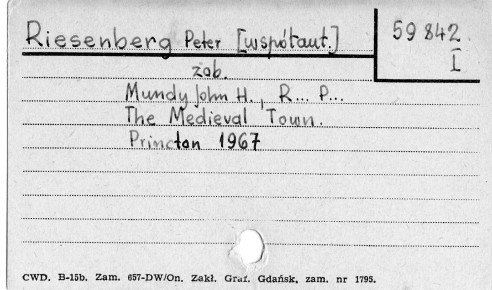 Riesenberg Peter [współaut.]
59 842
I
zob.
Mundy John H., R... P...
The Medieval Town.
Princton 1967
CWD. B-15b. Zam. 657-DW/On. Zakł. Graf. Gdańsk, zam. nr 1795.